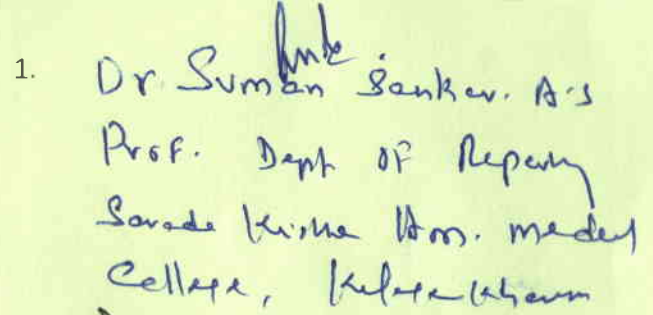 1. Dr. Suman Sankar. A.S
Prof. Dept OF Repertory
Sarada Krishna Hom. Medical
College, Kulasekharam